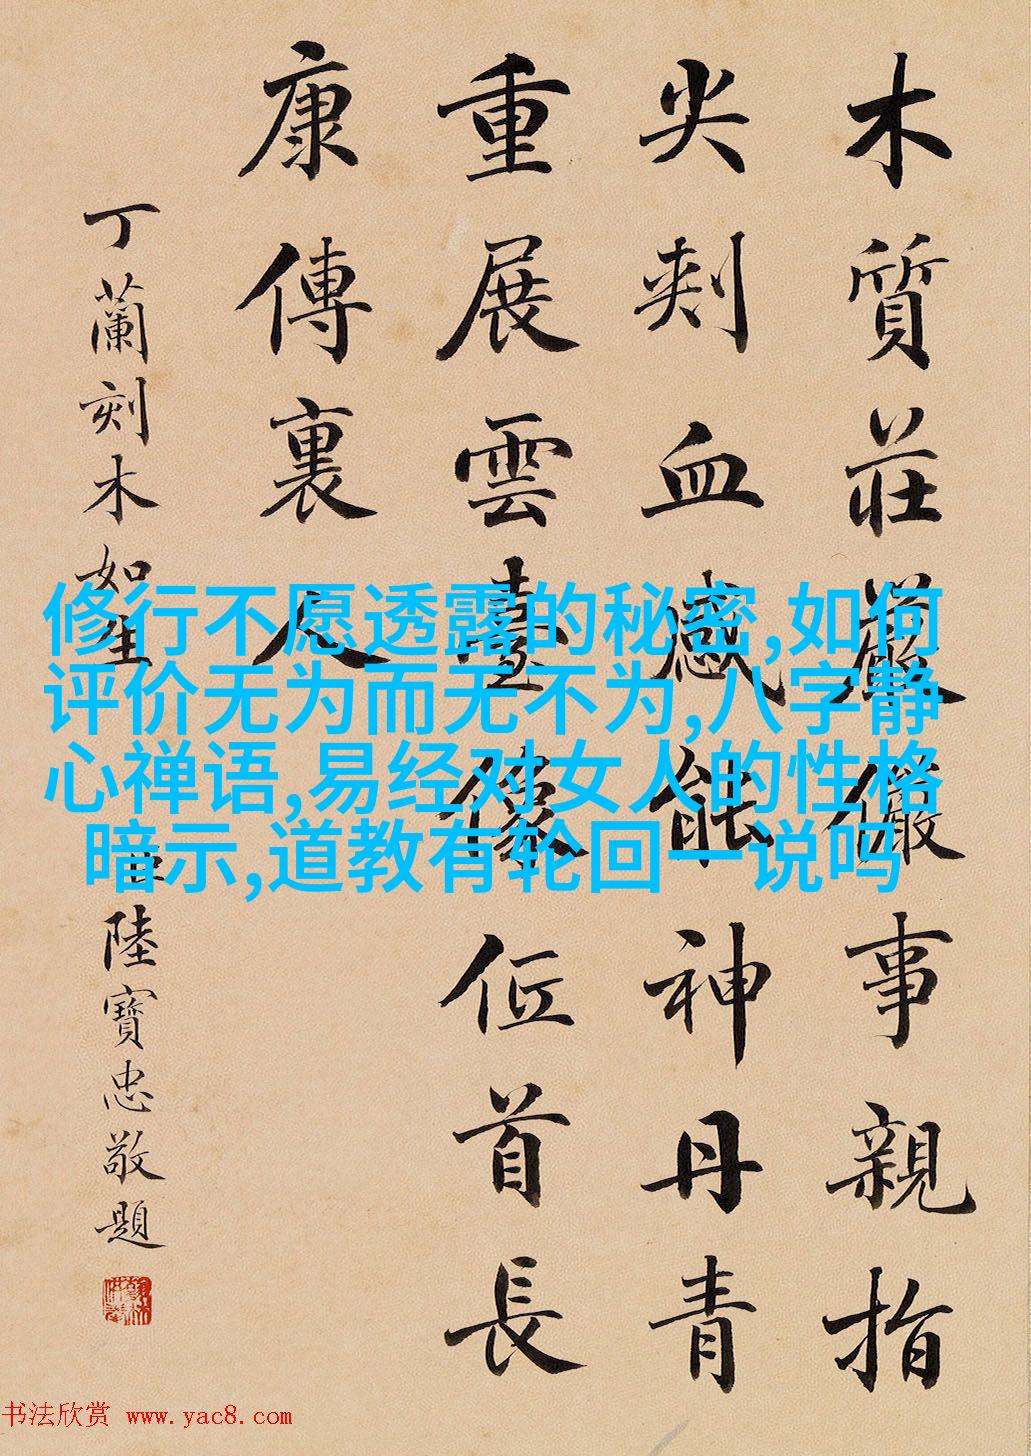 木質莊嚴儼事親指
尖刺血感能神丹青
重展雲臺像位首長
康傳裏人
丁蘭刻木如生
臣陸寶忠敬題
修行不愿透露的秘密,如何
评价无为而无不为,八字静
心禅语,易经对女人的性格
暗示,道教有轮回一说吗
书法欣赏 www.yac8.com